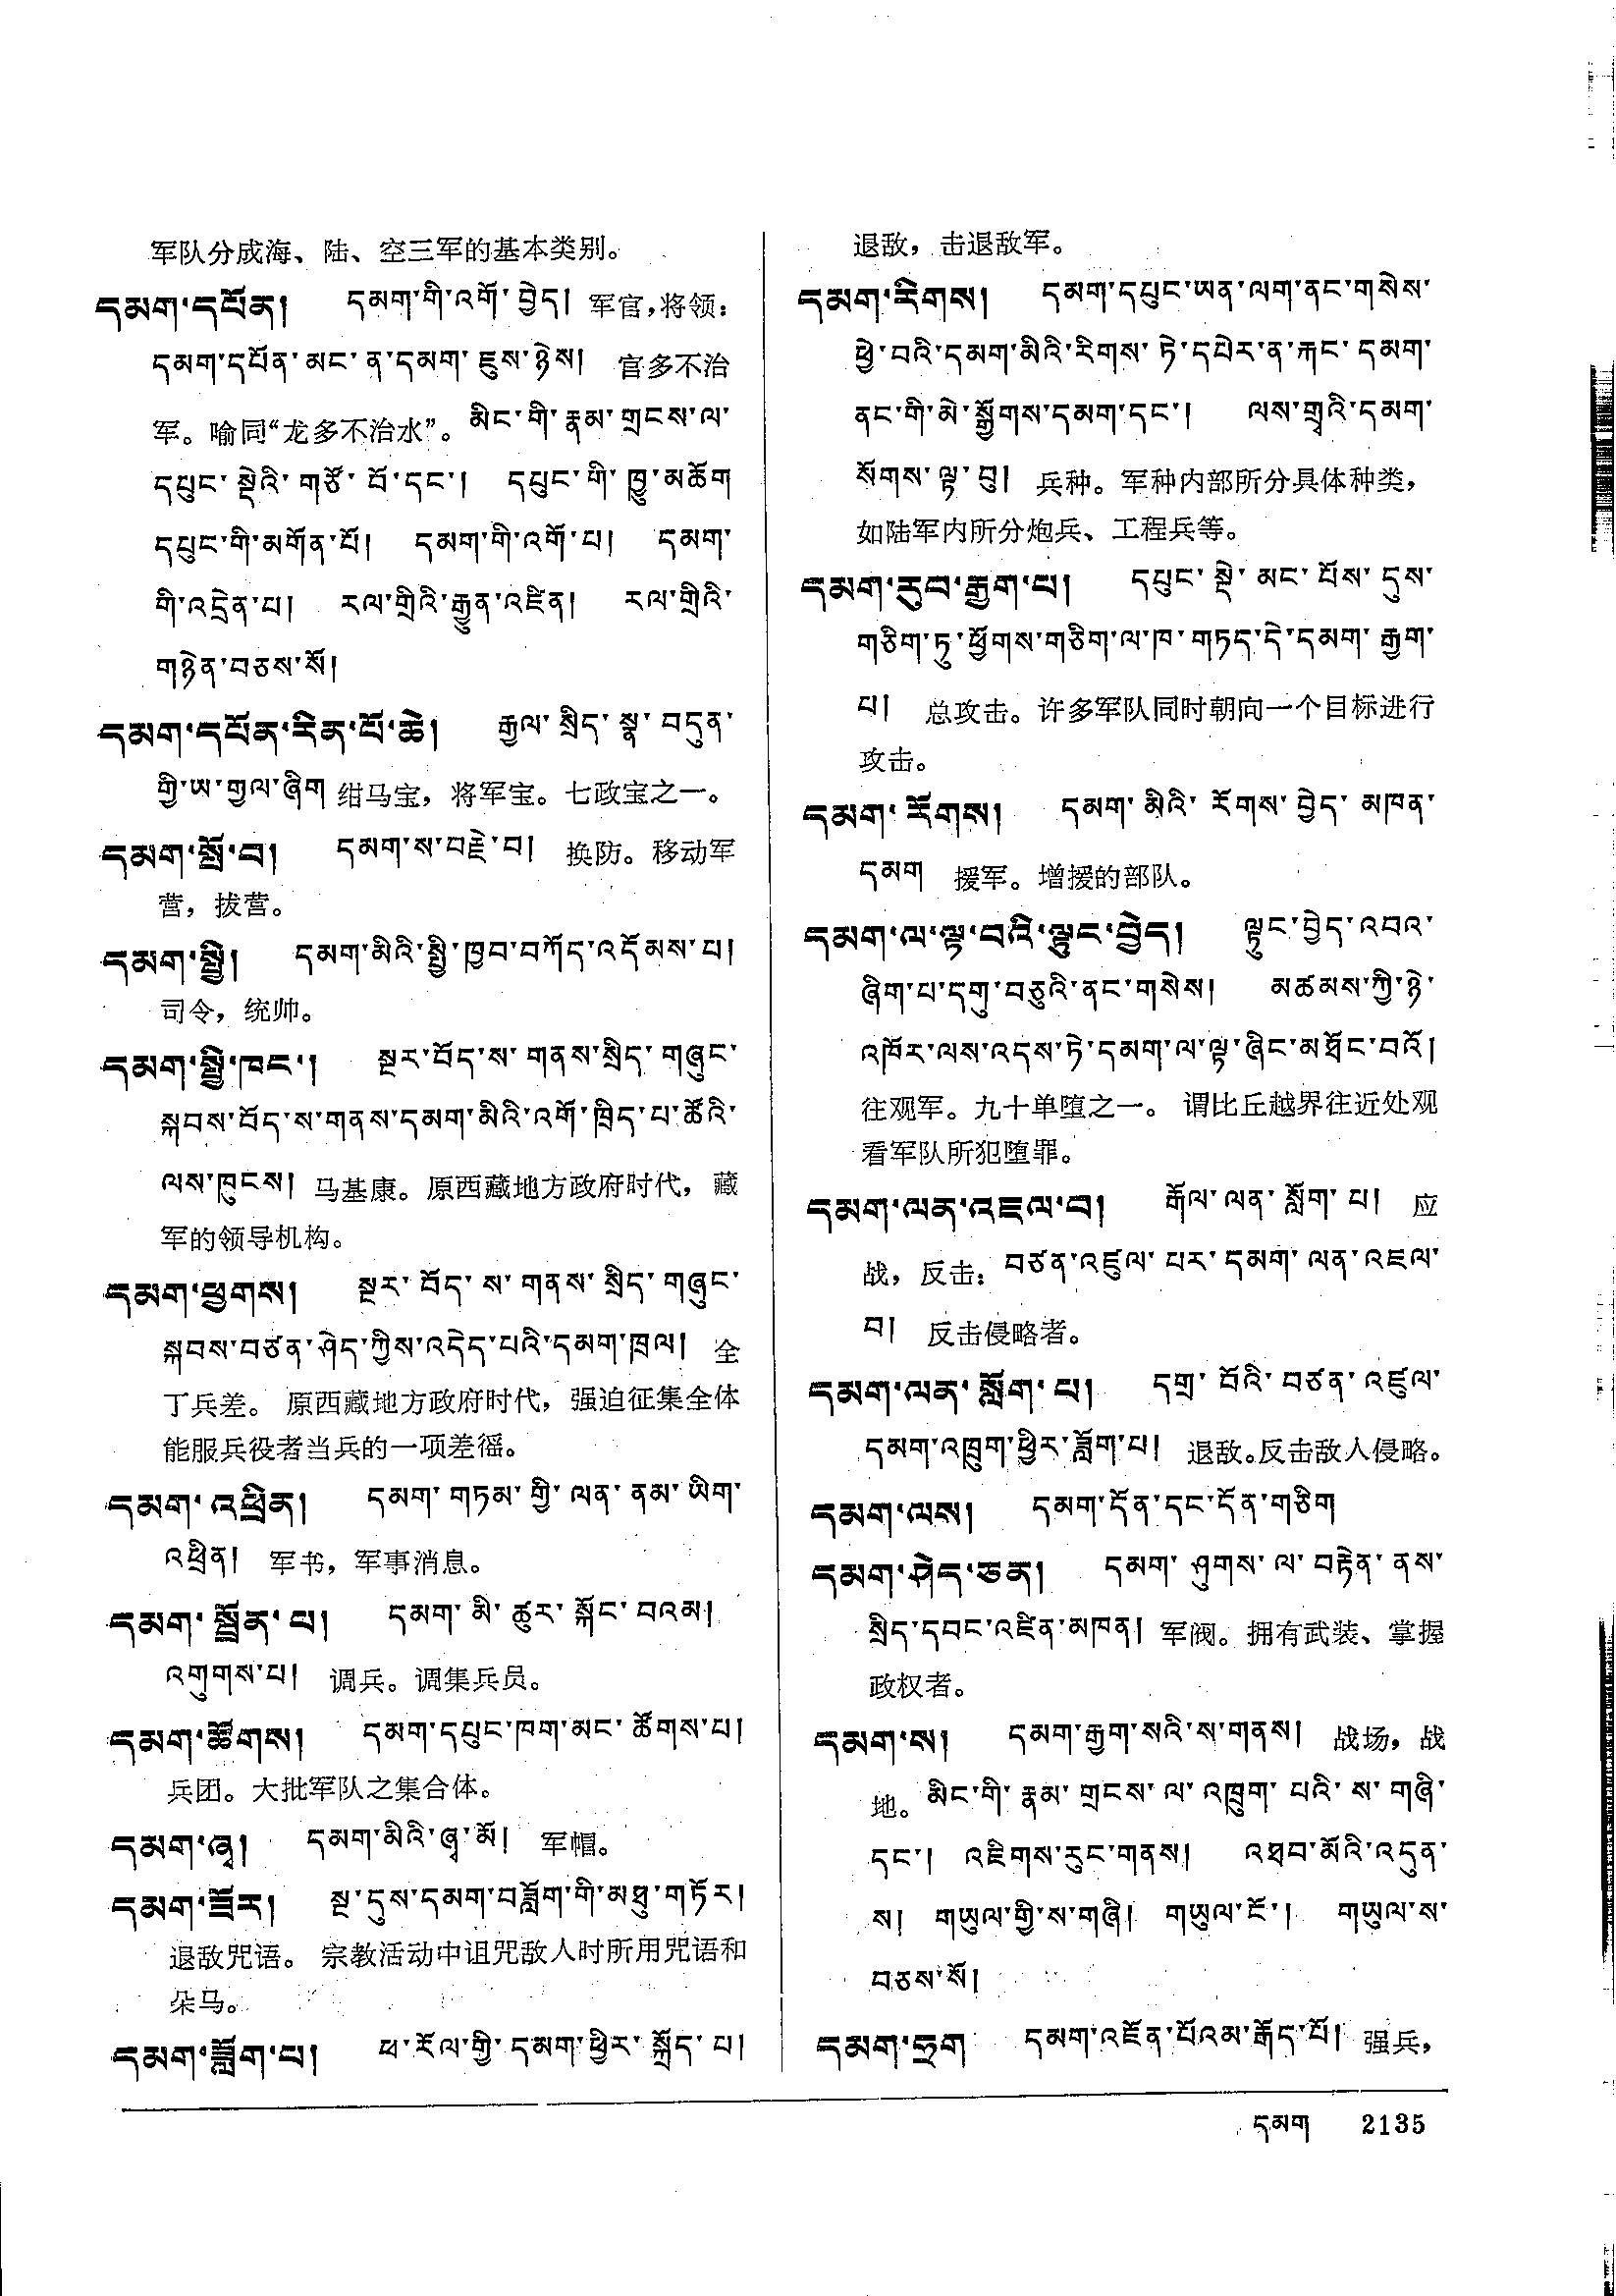 军队分成海、陆、空三军的基本类别。
དམག་དཔོན། དམག་གི་འགོ་བྱེད། 军官,将领:
དམག་དཔོན་མང་ན་དམག་ཇུས་ཉེས། 官多不治
军。喻同“龙多不治水”。མིང་གི་རྣམ་གྲངས་ལ་
དཔུང་སྡེའི་གཙོ་བོ་དང་། དཔུང་གི་ཁྱུ་མཆོག
དཔུང་གི་མགོན་པོ། དམག་གི་འགོ་པ། དམག་
གི་འདྲེན་པ། རལ་གྲིའི་རྒྱུན་འཛིན། རལ་གྲིའི་
གཉེན་བཅས་སོ།
དམག་དཔོན་རིན་པོ་ཆེ། རྒྱལ་སྲིད་སྣ་བདུན་
གྱི་ཨ་གྱལ་ཞིག 绀马宝，将军宝。七政宝之一。
དམག་སྤོ་བ། དམག་ས་བརྗེ་བ། 换防。移动军
营，拔营。
དམག་སྤྱི། དམག་མིའི་སྤྱི་ཁྱབ་བཀོད་འདོམས་པ།
司令，统帅。
དམག་སྤྱི་ཁང་། སྔར་བོད་ས་གནས་སྲིད་གཞུང་
སྐབས་བོད་ས་གནས་དམག་མིའི་འགོ་ཁྲིད་པ་ཚོའི་
ལས་ཁུངས། 马基康。原西藏地方政府时代，藏
军的领导机构。
དམག་ཕྱགས། སྔར་བོད་ས་གནས་སྲིད་གཞུང་
སྐབས་བཙན་ཤེད་ཀྱིས་འདེད་པའི་དམག་ཁྲལ། 全
丁兵差。原西藏地方政府时代，强迫征集全体
能服兵役者当兵的一项差徭。
དམག་འཕྲིན། དམག་གཏམ་གྱི་ལན་ནམ་ཡིག་
འཕྲིན། 军书，军事消息。
དམག་སློན་པ། དམག་མི་ཚུར་སྐོང་བའམ།
འགུགས་པ། 调兵。调集兵员。
དམག་ཚོགས། དམག་དཔུང་ཁག་མང་ཚོགས་པ།
兵团。大批军队之集合体。
དམག་ཞྭ། དམག་མིའི་ཞྭ་མོ། 军帽。
དམག་ཟོར། སྔ་དུས་དམག་བཟློག་གི་མཐུ་གཏོར།
退敌咒语。宗教活动中诅咒敌人时所用咒语和
朵马。
དམག་ཟློག་པ། ཕ་རོལ་གྱི་དམག་ཕྱིར་སྐྲོད་པ།
退敌，击退敌军。
དམག་རིགས། དམག་དཔུང་ཡན་ལག་ནང་གསེས་
ཕྱེ་བའི་དམག་མིའི་རིགས་ཏེ་དཔེར་ན་རྐང་དམག་
ནང་གི་མེ་སྒྱོགས་དམག་དང་། ལས་གྲྭའི་དམག་
སོགས་ལྟ་བུ། 兵种。军种内部所分具体种类，
如陆军内所分炮兵、工程兵等。
དམག་རུབ་རྒྱག་པ། དཔུང་སྡེ་མང་པོས་དུས་
གཅིག་ཏུ་ཕྱོགས་གཅིག་ལ་ཁ་གཏད་དེ་དམག་རྒྱག་
པ། 总攻击。许多军队同时朝向一个目标进行
攻击。
དམག་རོགས། དམག་མིའི་རོགས་བྱེད་མཁན་
དམག 援军。增援的部队。
དམག་ལ་ལྟ་བའི་ལྟུང་བྱེད། ལྟུང་བྱེད་འབའ་
ཞིག་པ་དགུ་བཅུའི་ནང་གསེས། མཚམས་ཀྱི་ཉེ་
འཁོར་ལས་འདས་ཏེ་དམག་ལ་ལྟ་ཞིང་མཐོང་བའོ།
往观军。九十单堕之一。谓比丘越界往近处观
看军队所犯堕罪。
དམག་ལན་འཇལ་བ། རྒོལ་ལན་སློག་པ། 应
战，反击：བཙན་འཛུལ་པར་དམག་ལན་འཇལ་
བ། 反击侵略者。
དམག་ལན་སློག་པ། དགྲ་བོའི་བཙན་འཛུལ་
དམག་འཁྲུག་ཕྱིར་ཟློག་པ། 退敌。反击敌人侵略。
དམག་ལས། དམག་དོན་དང་དོན་གཅིག
དམག་ཤེད་ཅན། དམག་ཤུགས་ལ་བརྟེན་ནས་
སྲིད་དབང་འཛིན་མཁན། 军阀。拥有武装、掌握
政权者。
དམག་ས། དམག་རྒྱག་སའི་ས་གནས། 战场，战
地。མིང་གི་རྣམ་གྲངས་ལ་འཁྲུག་པའི་ས་གཞི་
དང་། འཇིགས་རུང་གནས། འཐབ་མོའི་འདུན་
ས། གཡུལ་གྱི་ས་གཞི། གཡུལ་ངོ་། གཡུལ་ས་
བཅས་སོ།
དམག་ཧྲག དམག་འཇོན་པོའམ་རྒོད་པོ། 强兵，
དམག 2135